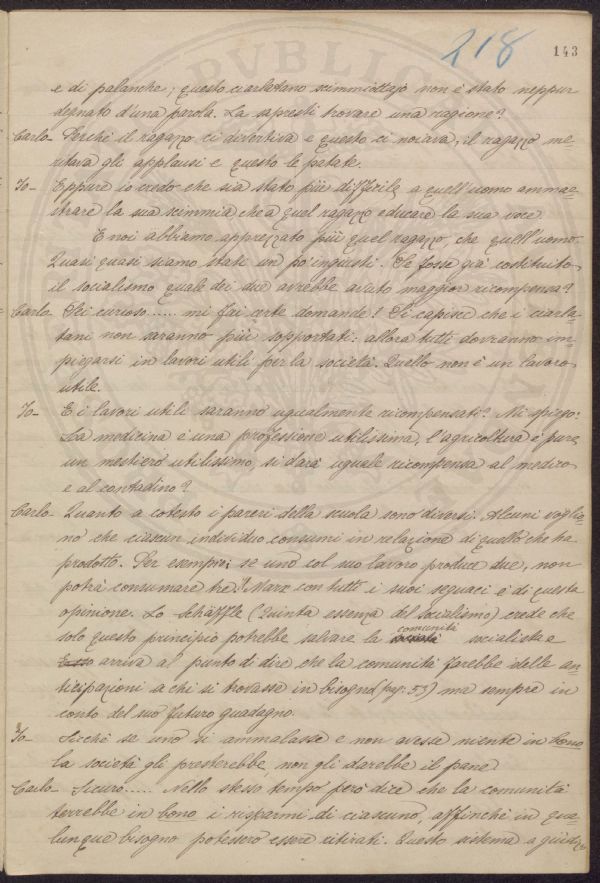 218 143
e di palanche; questo ciarlatano scimmiottajo non è stato neppur
degnato d'una parola. La sapresti trovare una ragione?
Carlo - Perchè il ragazzo ci divertiva e questo ci noiava, il ragazzo me=
ritava gli applausi e questo le patate.
Io - Eppure io credo che sia stato più difficile a quell'uomo ammae=
strare la sua scimmia che a quel ragazzo educare la sua voce.
E noi abbiamo apprezzato più quel ragazzo, che quell'uomo.
Quasi quasi siamo stati un po' ingiusti. Se fosse già costituito
il socialismo quale dei due avrebbe avuto maggior ricompensa?
Carlo - Sei curioso...... mi fai certe domande! Si capisce che i ciarla=
tani non saranno più sopportati: allora tutti dovranno im=
piegarsi in lavori utili per la società. Quello non è un lavoro
utile.
Io - E i lavori utili saranno ugualmente ricompensati? Mi spiego:
La medicina è una professione utilissima, l'agricoltura è pure
un mestiere utilissimo, si darà uguale ricompensa al medico
e al contadino?
Carlo - Quanto a cotesto i pareri della scuola sono diversi. Alcuni voglio=
no che ciascun individuo consumi in relazione di quello che ha
prodotto. Per esempio: se uno col suo lavoro produce due, non
potrà consumare tre. Marx con tutti i suoi seguaci è di questa
opinione. Lo Schäffle (Quinta essenza del socialismo) crede che
solo questo principio potrebbe salvare la comunità socialista e
arriva al punto di dire che la comunità farebbe delle an=
ticipazioni a chi si trovasse in bisogno (pag. 53) ma sempre in
conto del suo futuro guadagno.
Io - Sicchè se uno si ammalasse e non avesse niente in bono
la società gli presterebbe non gli darebbe il pane.
Carlo - Sicuro...... Nello stesso tempo però dice che la comunità
terrebbe in bono i risparmi di ciascuno, affinchè in qua=
lunque bisogno potessero essere ritirati. Questo sistema a giudizio